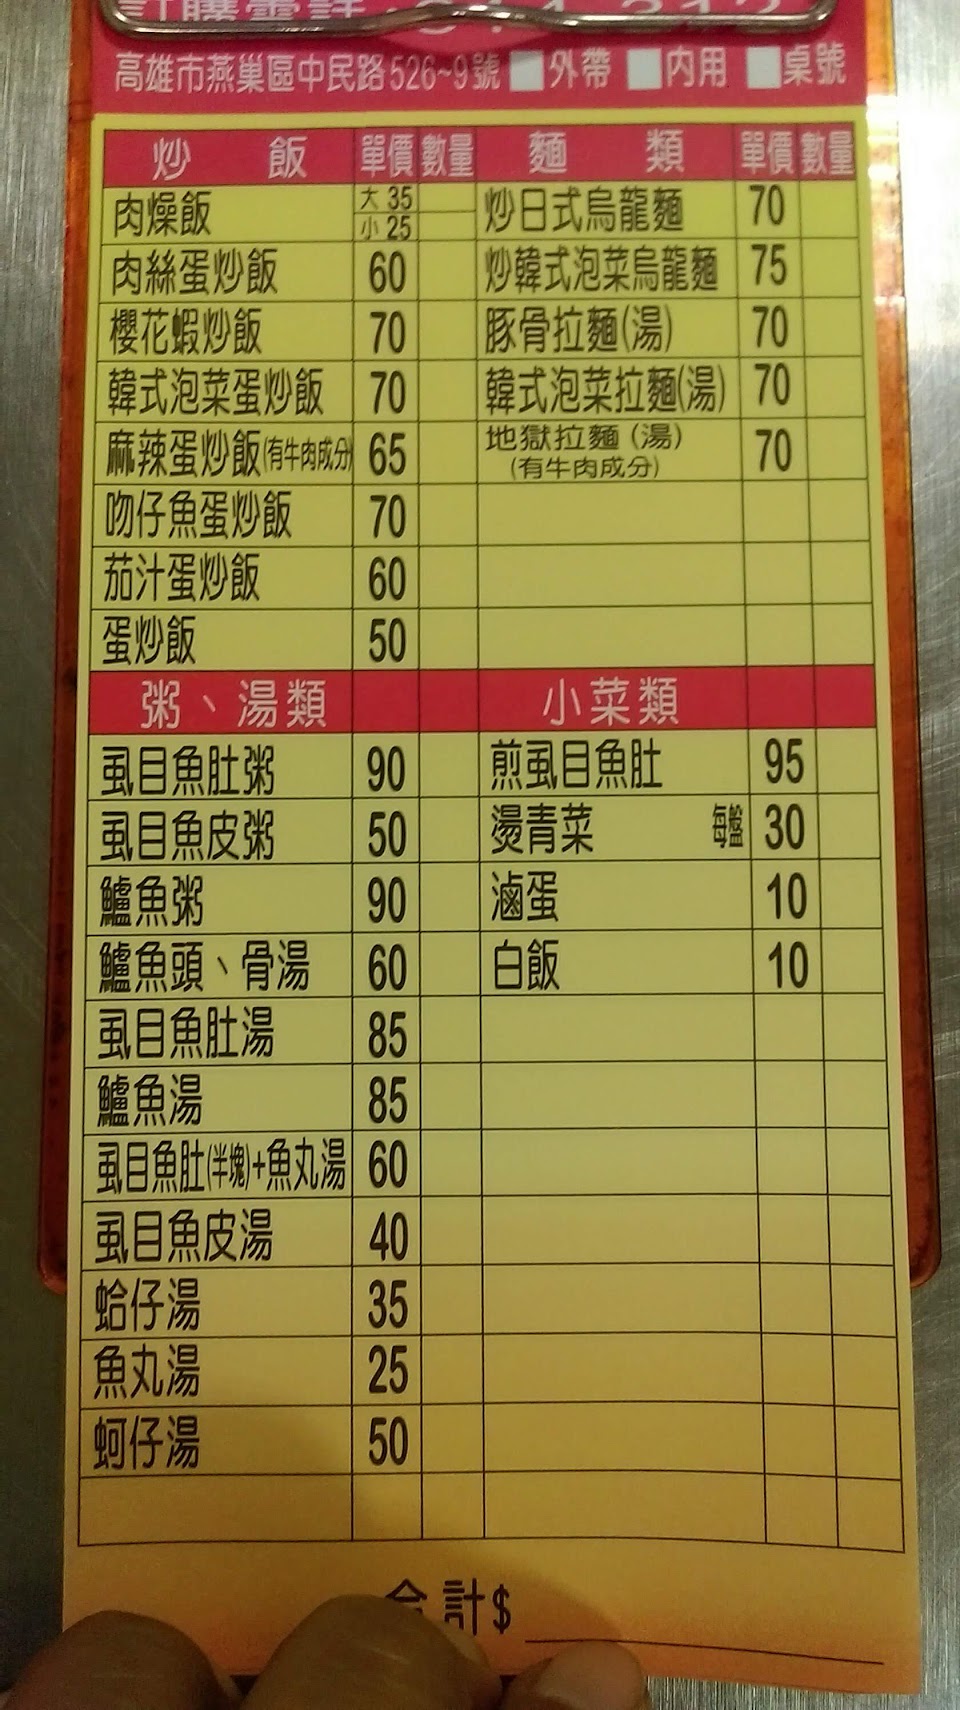 高雄市燕巢區中民路526~9號 外帶 內用 桌號
炒飯 單價 數量 麵類 單價 數量
肉燥飯 大 35 小 25 炒日式烏龍麵 70
肉絲蛋炒飯 60 炒韓式泡菜烏龍麵 75
櫻花蝦炒飯 70 豚骨拉麵(湯) 70
韓式泡菜蛋炒飯 70 韓式泡菜拉麵(湯) 70
麻辣蛋炒飯(有牛肉成分) 65 地獄拉麵(湯) (有牛肉成分) 70
吻仔魚蛋炒飯 70
茄汁蛋炒飯 60
蛋炒飯 50
粥、湯類 小菜類
虱目魚肚粥 90 煎虱目魚肚 95
虱目魚皮粥 50 燙青菜 每盤 30
鱸魚粥 90 滷蛋 10
鱸魚頭、骨湯 60 白飯 10
虱目魚肚湯 85
鱸魚湯 85
虱目魚肚(半塊)+魚丸湯 60
虱目魚皮湯 40
蛤仔湯 35
魚丸湯 25
蚵仔湯 50
合計$